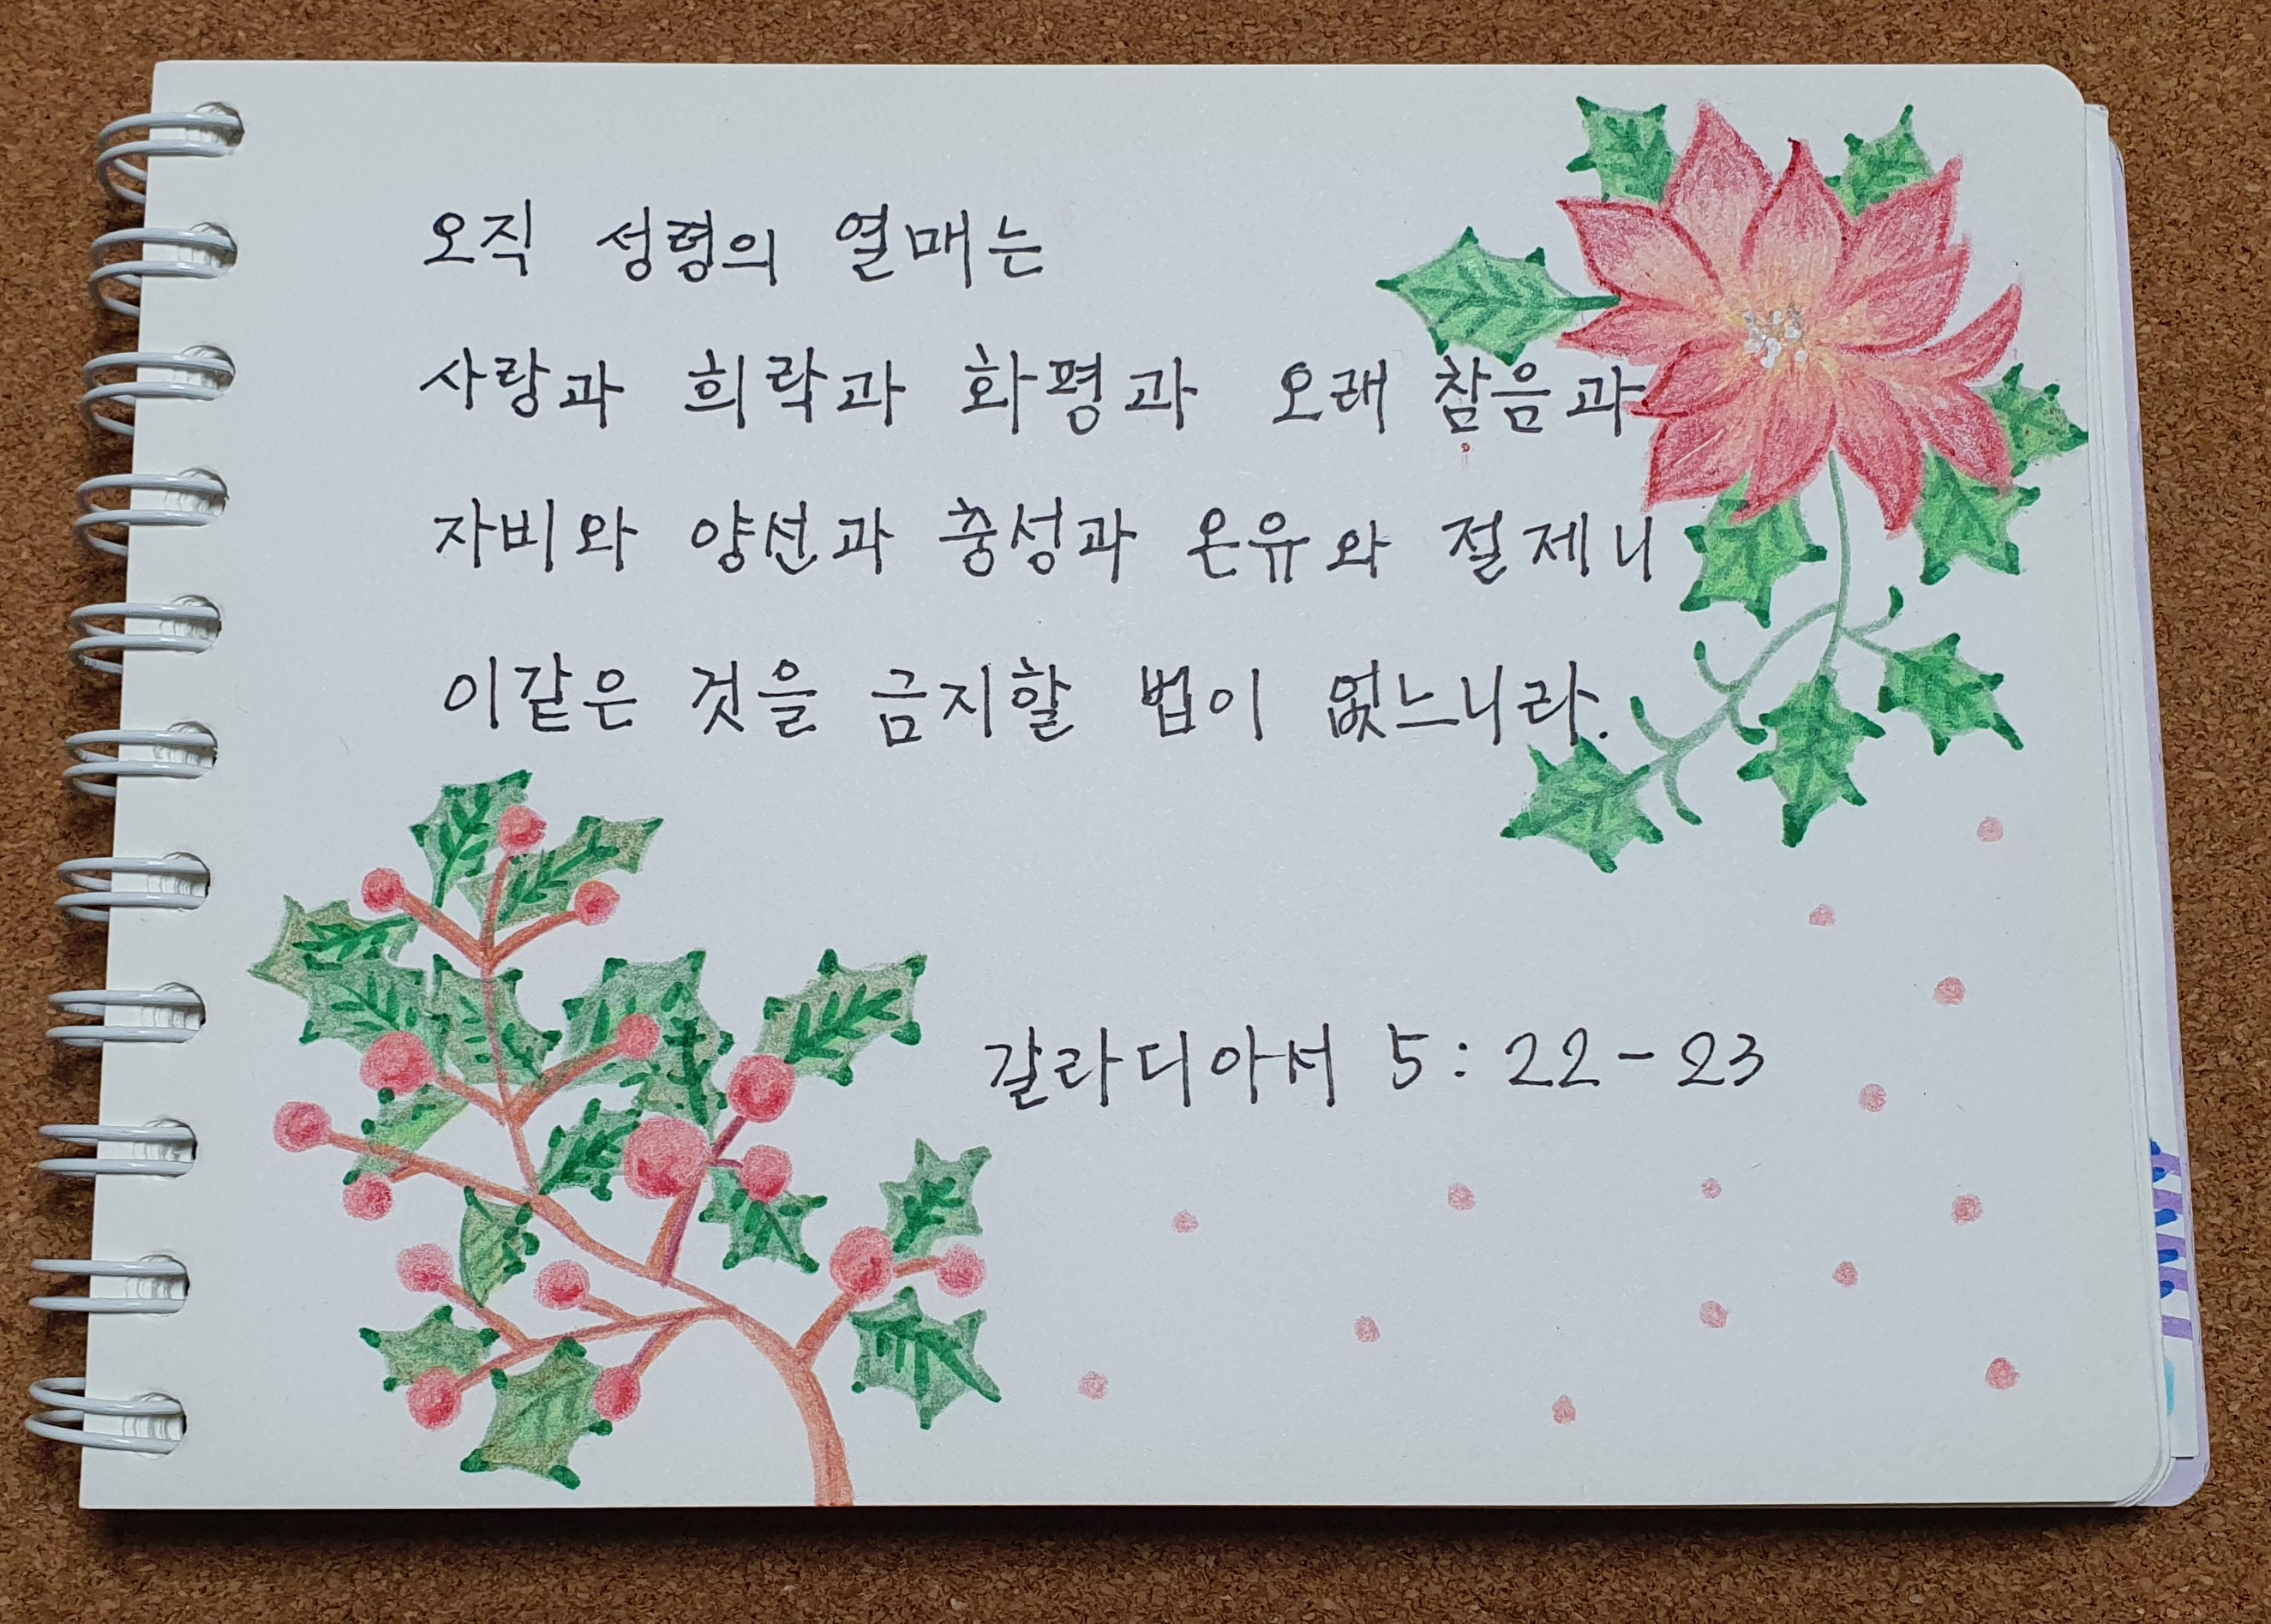 오직 성령의 열매는
사랑과 희락과 화평과 오래 참음과
자비와 양선과 충성과 온유와 절제니
이같은 것을 금지할 법이 없느니라.
갈라디아서 5:22-23